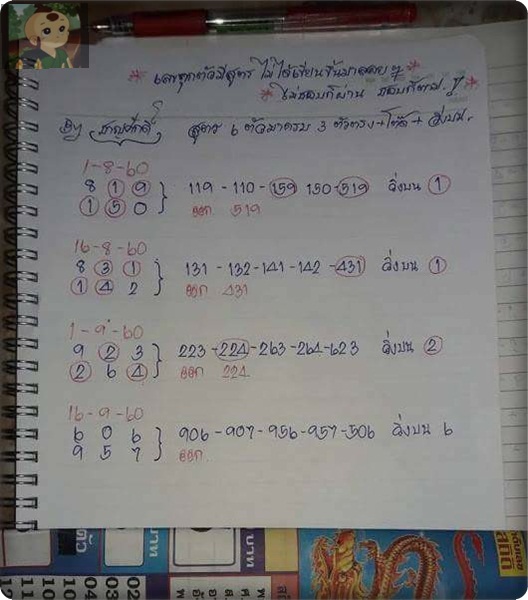 * เลขทุกตัวมีสูตร ไม่ได้เขียนขึ้นมาลอยๆ *
* ไม่ชอบก็ผ่าน ชอบก็ตาม. *
By ชาญศักดิ์ สูตร 6 ตัวมาครบ 3 ตัวตรง+โต๊ด+วิ่งบน.
1-8-60
8 1 9
1 5 0
119 - 110 - 159 150 - 519 วิ่งบน 1
ออก 519
16-8-60
8 3 1
1 4 2
131 - 132 - 141 - 142 - 431 วิ่งบน 1
ออก 431
1-9-60
9 2 3
2 6 4
223 - 224 - 263 - 264 - 623 วิ่งบน 2
ออก 224
16-9-60
6 0 6
9 5 7
906 - 907 - 956 - 957 - 506 วิ่งบน 6
ออก.
บาท
บาท